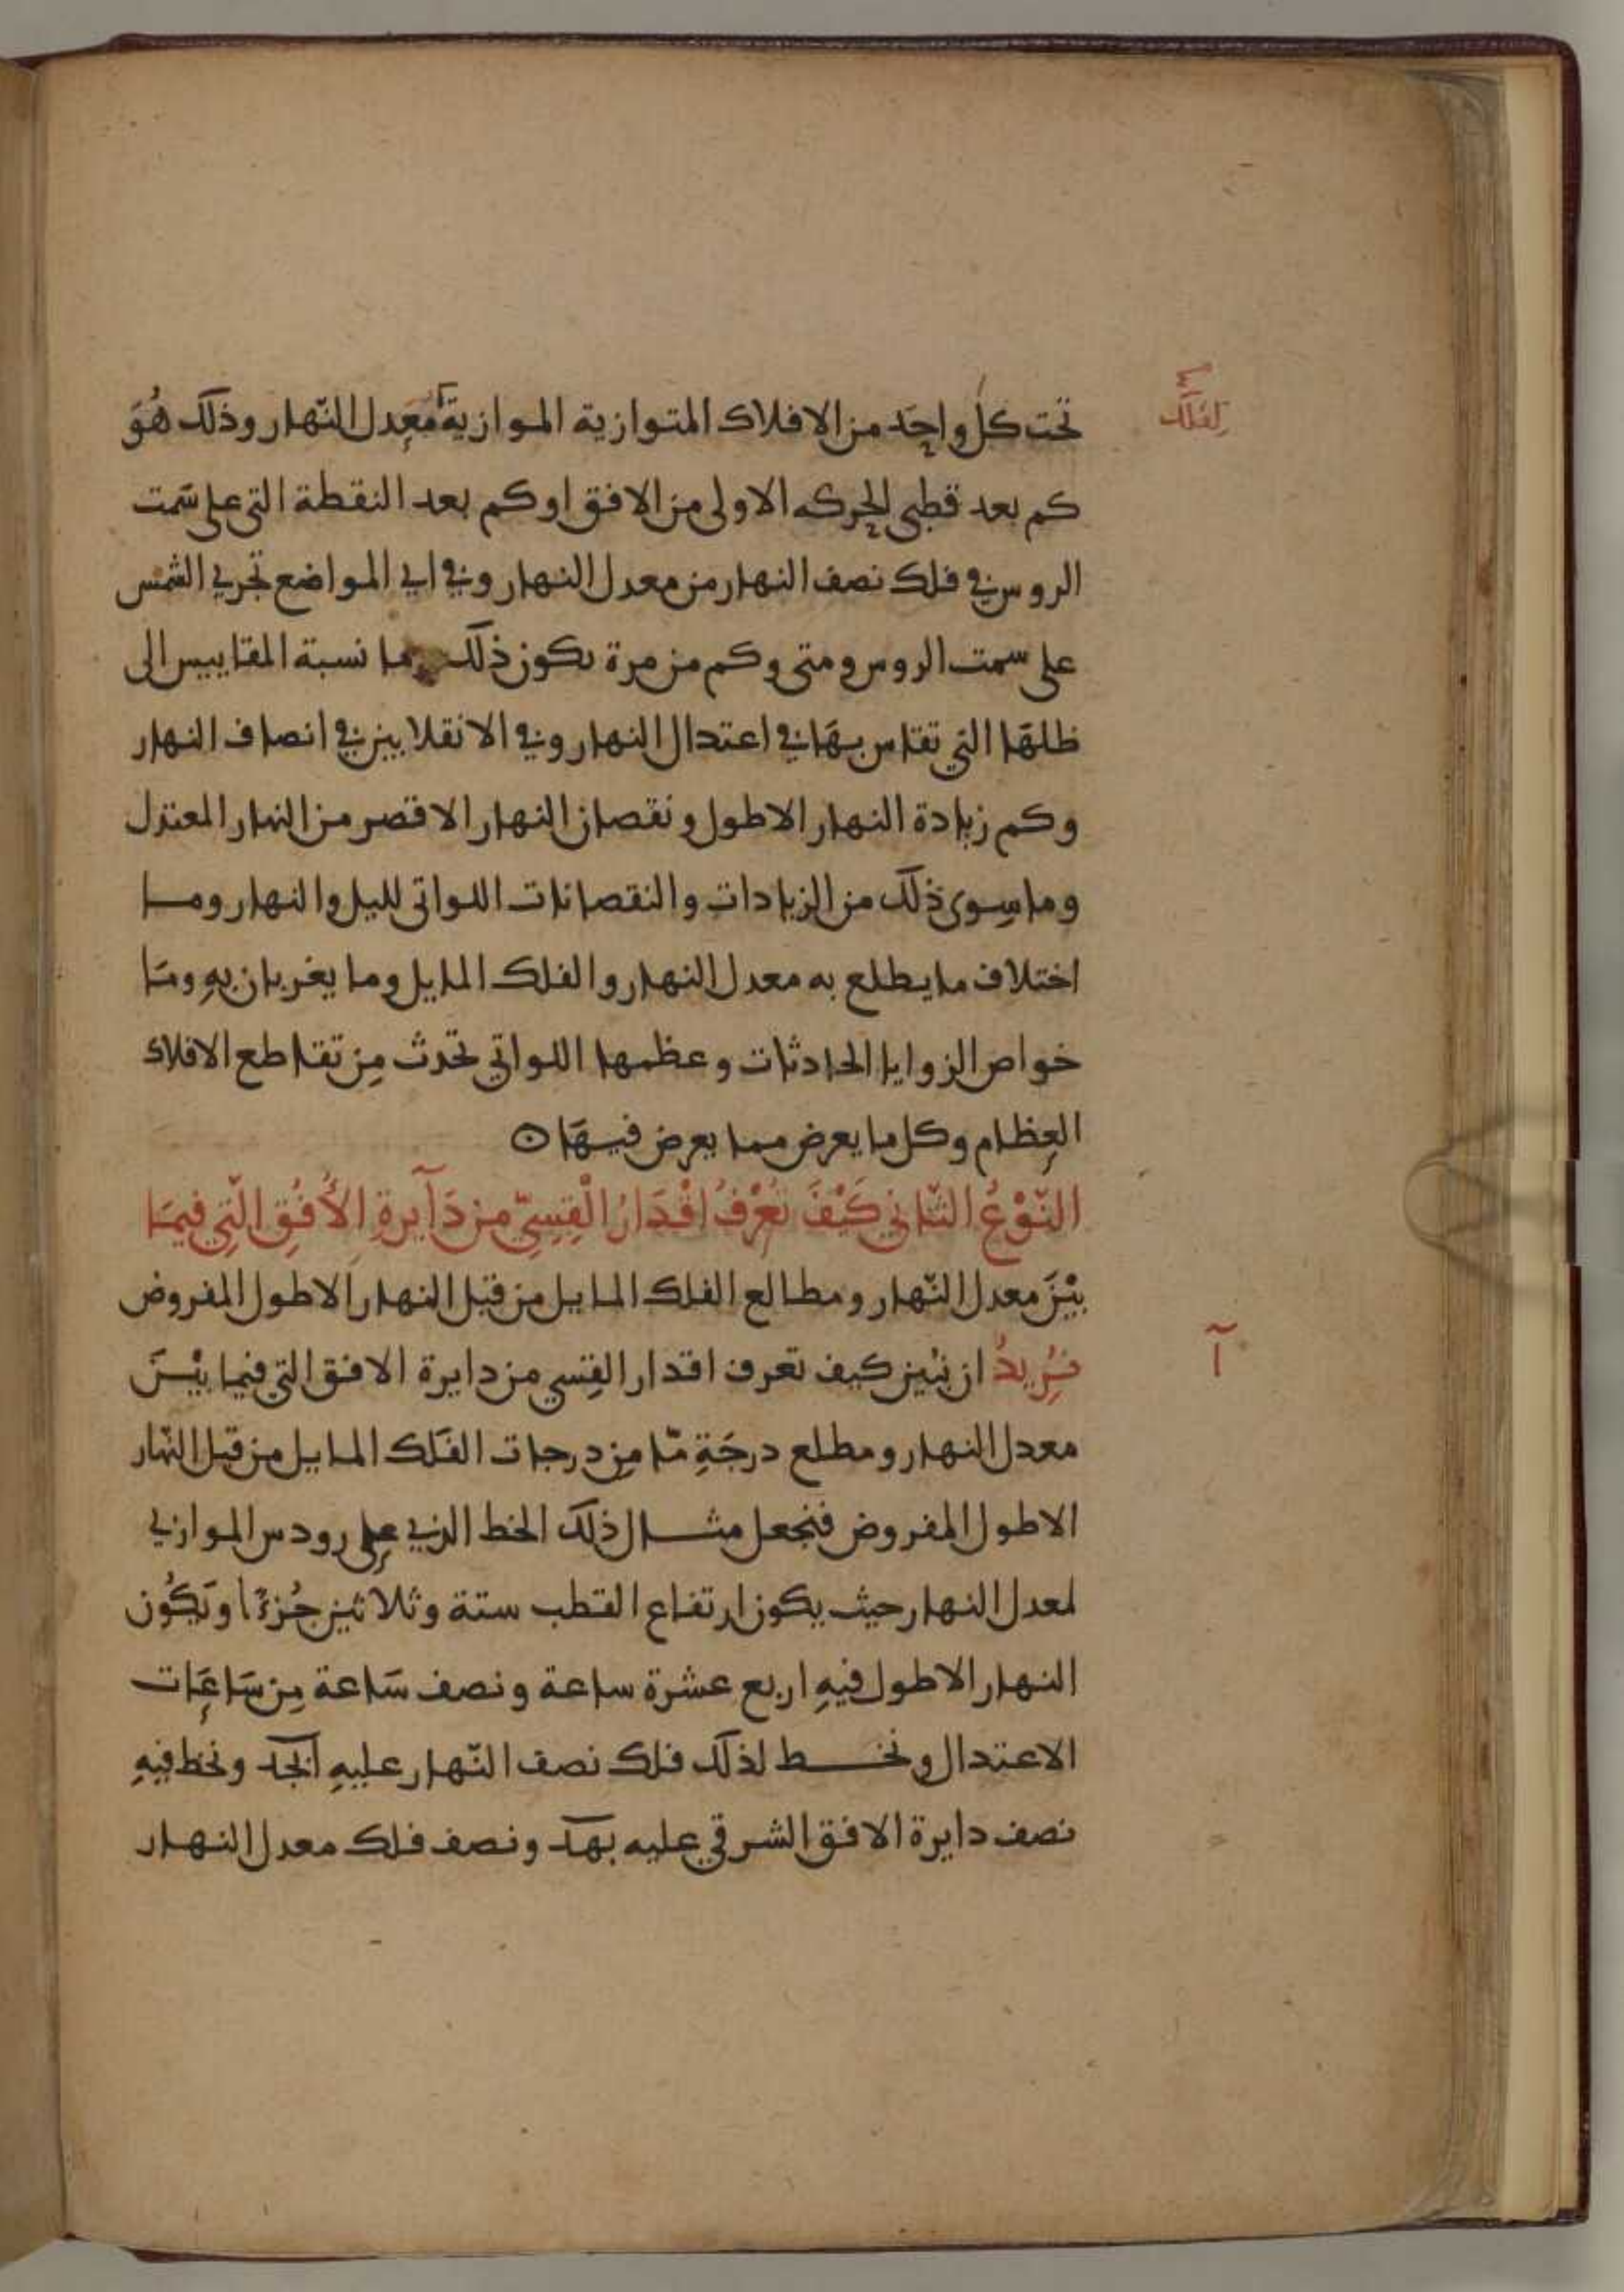 تحت كل واحد من الافلاك المتوازية الموازية معدل النهار وذلك هُوَ
لفلك
كم بعد قطبي الحركه الاولى من الافق او كم بعد النقطة التي على سَمت
الروس في فلك نصف النهار من معدل النهار وفي اي المواضع تجري الشمس
على سمت الروس ومتى وكم من مرة يكون ذلك وما نسبة المقاييس الى
ظلهَا التي تقاس بهَا في اعتدال النهار وفي الانقلابين في انصاف النهار
وكم زيادة النهار الاطول ونقصان النهار الاقصر من النهار المعتدل
وما سِوى ذلك من الزيادات والنقصانات اللواتي لليل والنهار وما
اختلاف ما يطلع به معدل النهار والفلك المايل وما يغربان بهِ ومَا
خواص الزوايا الحادثات وعظمها اللواتي تحدث مِن تقاطع الافلاك
العِظام وكل ما يعرض مما يعرض فيهَا ن
النّوْعُ الثّاني كَيْفَ تُعْرَفُ اقْدَارُ الْقِسِيّ من دَآيرةِ الأُفُقِ الّتِي فيمَا
بيْنَ معدل النّهار ومطالع الفلك المايل من قبل النهار الاطول المفروض
آ
نُرِيدُ ان نبين كيف تعرف اقدار القِسي من دايرة الافق التي فيما بيْنَ
معدل النهار ومطلع درجَةٍ مّا مِن درجات الفَلك المايل من قبل النّهار
الاطول المفروض فنجعل مثال ذلك الخط الذي على رودس الموازي
لمعدل النهار حيث يكون ارتفاع القطب ستة وثلاثين جُزءًا ويَكُون
النهار الاطول فيهِ اربع عشرة ساعة ونصف سَاعة مِن سَاعَات
الاعتدال ونخط لذلك فلك نصف النّهار عليهِ ابجد ونخط فيهِ
نصف دايرة الافق الشرقي عليه بهد ونصف فلك معدل النهار